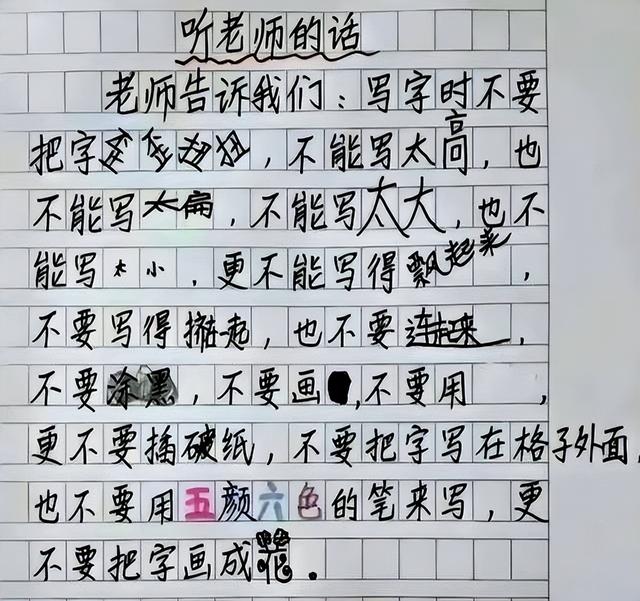 听老师的话
老师告诉我们：写字时不要
把字歪歪扭扭，不能写太高，也
不能写太扁，不能写太大，也不
能写太小，更不能写得飘起来，
不要写得挤在一起，也不要连起来，
不要涂黑，不要画，不要用    ，
更不要插破纸，不要把字写在格子外面，
也不要用五颜六色的笔来写，更
不要把字画成花。